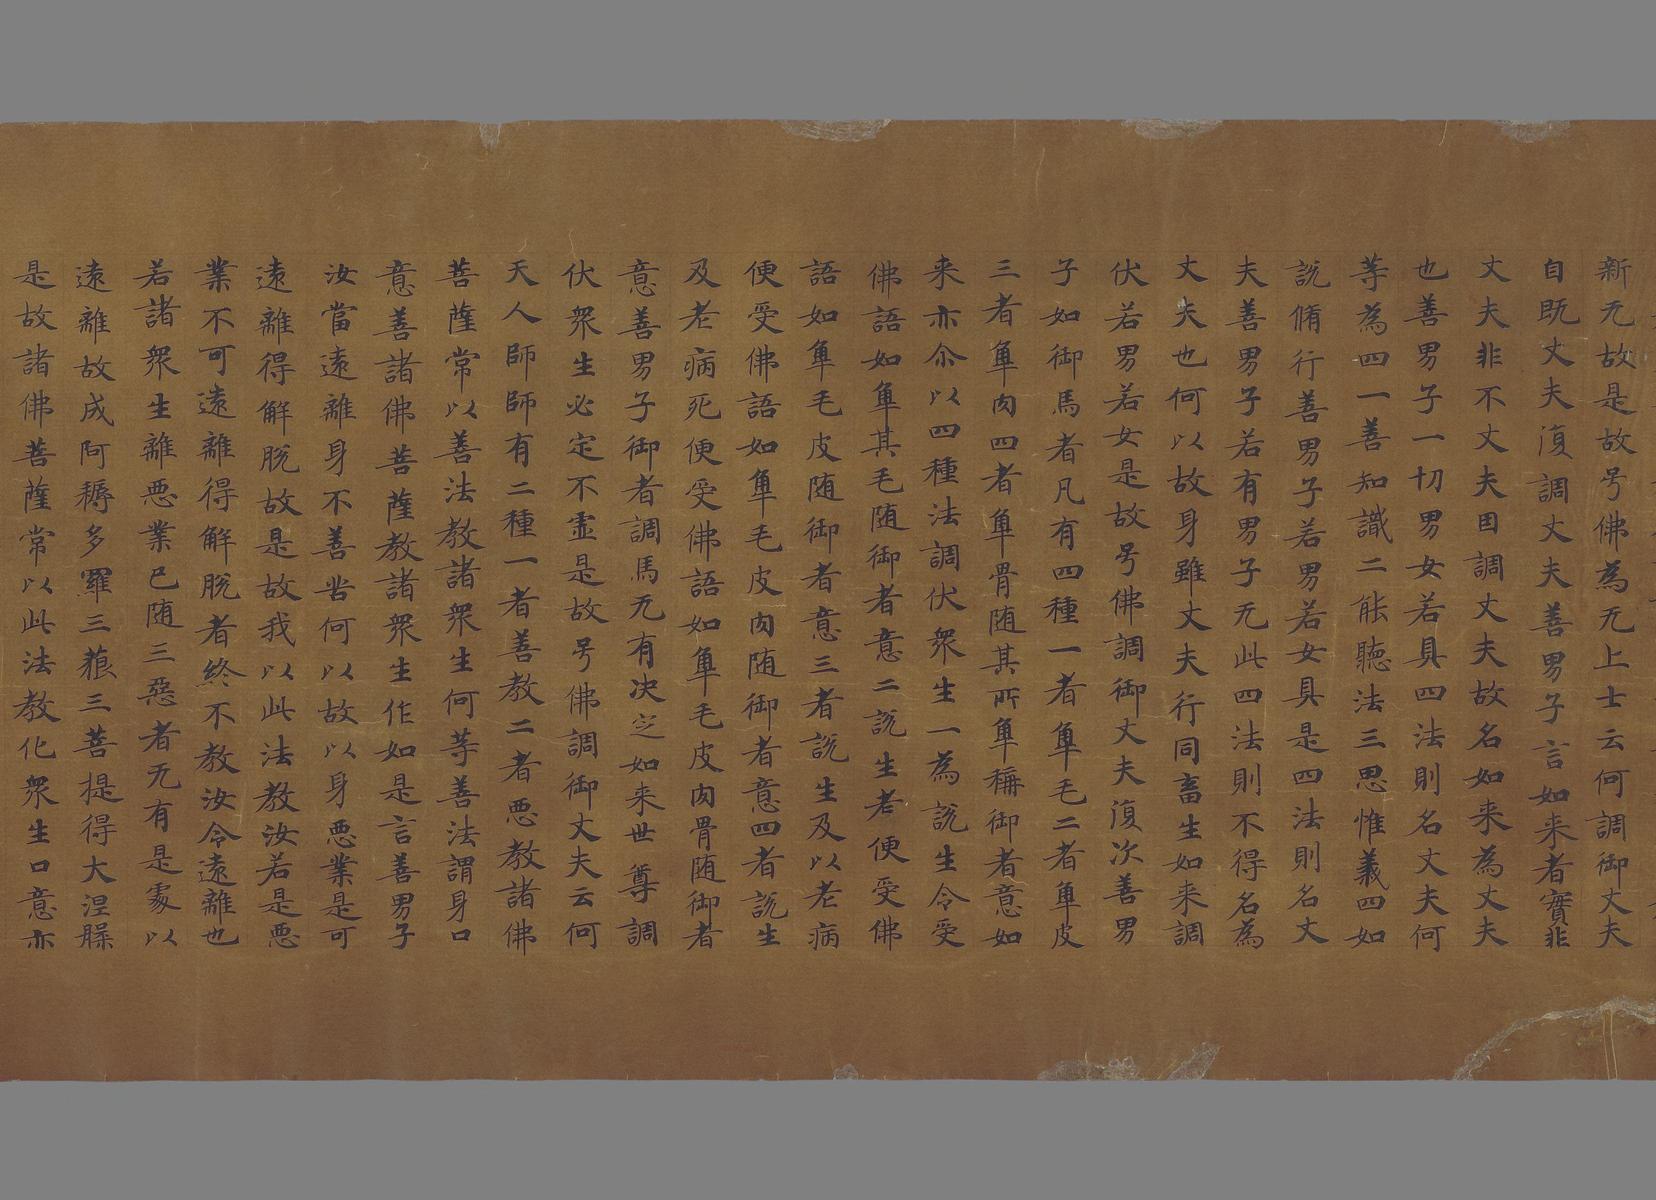 新无故是故号佛為无上士云何調御丈夫
自既丈夫復調丈夫善男子言如来者實非
丈夫非不丈夫因調丈夫故名如来為丈夫
也善男子一切男女若具四法則名丈夫何
等為四一善知識二能聽法三思惟義四如
說脩行善男子若男若女具是四法則名丈
夫善男子若有男子无此四法則不得名為
丈夫也何以故身雖丈夫行同畜生如来調
伏若男若女是故号佛調御丈夫復次善男
子如御馬者凡有四種一者觸毛二者觸皮
三者觸肉四者觸骨随其所觸稱御者意如
来亦尒以四種法調伏衆生一為說生令受
佛語如觸其毛随御者意二說生老便受佛
語如觸毛皮随御者意三者說生及以老病
便受佛語如觸毛皮肉随御者意四者說生
及老病死便受佛語如觸毛皮肉骨随御者
意善男子御者調馬无有决定如来世尊調
伏衆生必定不虚是故号佛調御丈夫云何
天人師師有二種一者善教二者惡教諸佛
菩薩常以善法教諸衆生何等善法謂身口
意善諸佛菩薩教諸衆生作如是言善男子
汝當遠離身不善業何以故以身惡業是可
遠離得解脫故是故我以此法教汝若是惡
業不可遠離得解脫者終不教汝令遠離也
若諸衆生離惡業已随三惡者无有是處以
遠離故成阿耨多羅三藐三菩提得大涅槃
是故諸佛菩薩常以此法教化衆生口意亦